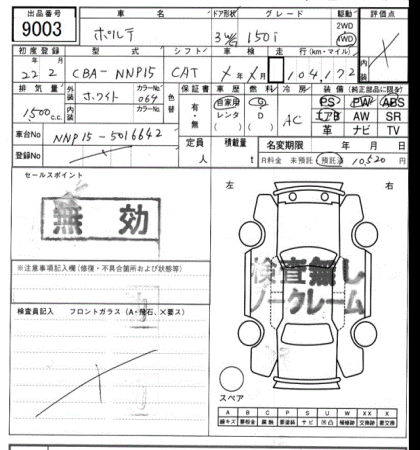 出品番号 車名 ドア形状 グレード 駆動 評価点
9003 ポルテ 3 W/G 150i 2WD 4WD
内装
初度登録 型式 シフト 車検 走行(km・マイル)
22年 2月 CBA-NNP15 CAT X年 X月 104,172
排気量 外装 ホワイト カラーNo. 069 色替 保証書 車歴 燃料 冷房 装備(純正部品に限る)
1,500 c.c. 内装 カラーNo. 有・無 自家用 レンタ G D AC PS PW ABS
エアB AW SR
革 ナビ TV
車台No. NNP15-5016642 定員 人 積載量 t 名変期限 年 月 日
登録No. R料金 未預託 預託済 10,520 円
セールスポイント
無効
左 右
検査無し
ノークレーム
※注意事項記入欄(修復・不具合箇所および状態等)
検査員記入 フロントガラス(A・飛石、×要ス)
スペア
A B C P S U W X XX
線キズ 要板金 腐触 要塗装 サビ 凹凸 補修跡 交換跡 要交換